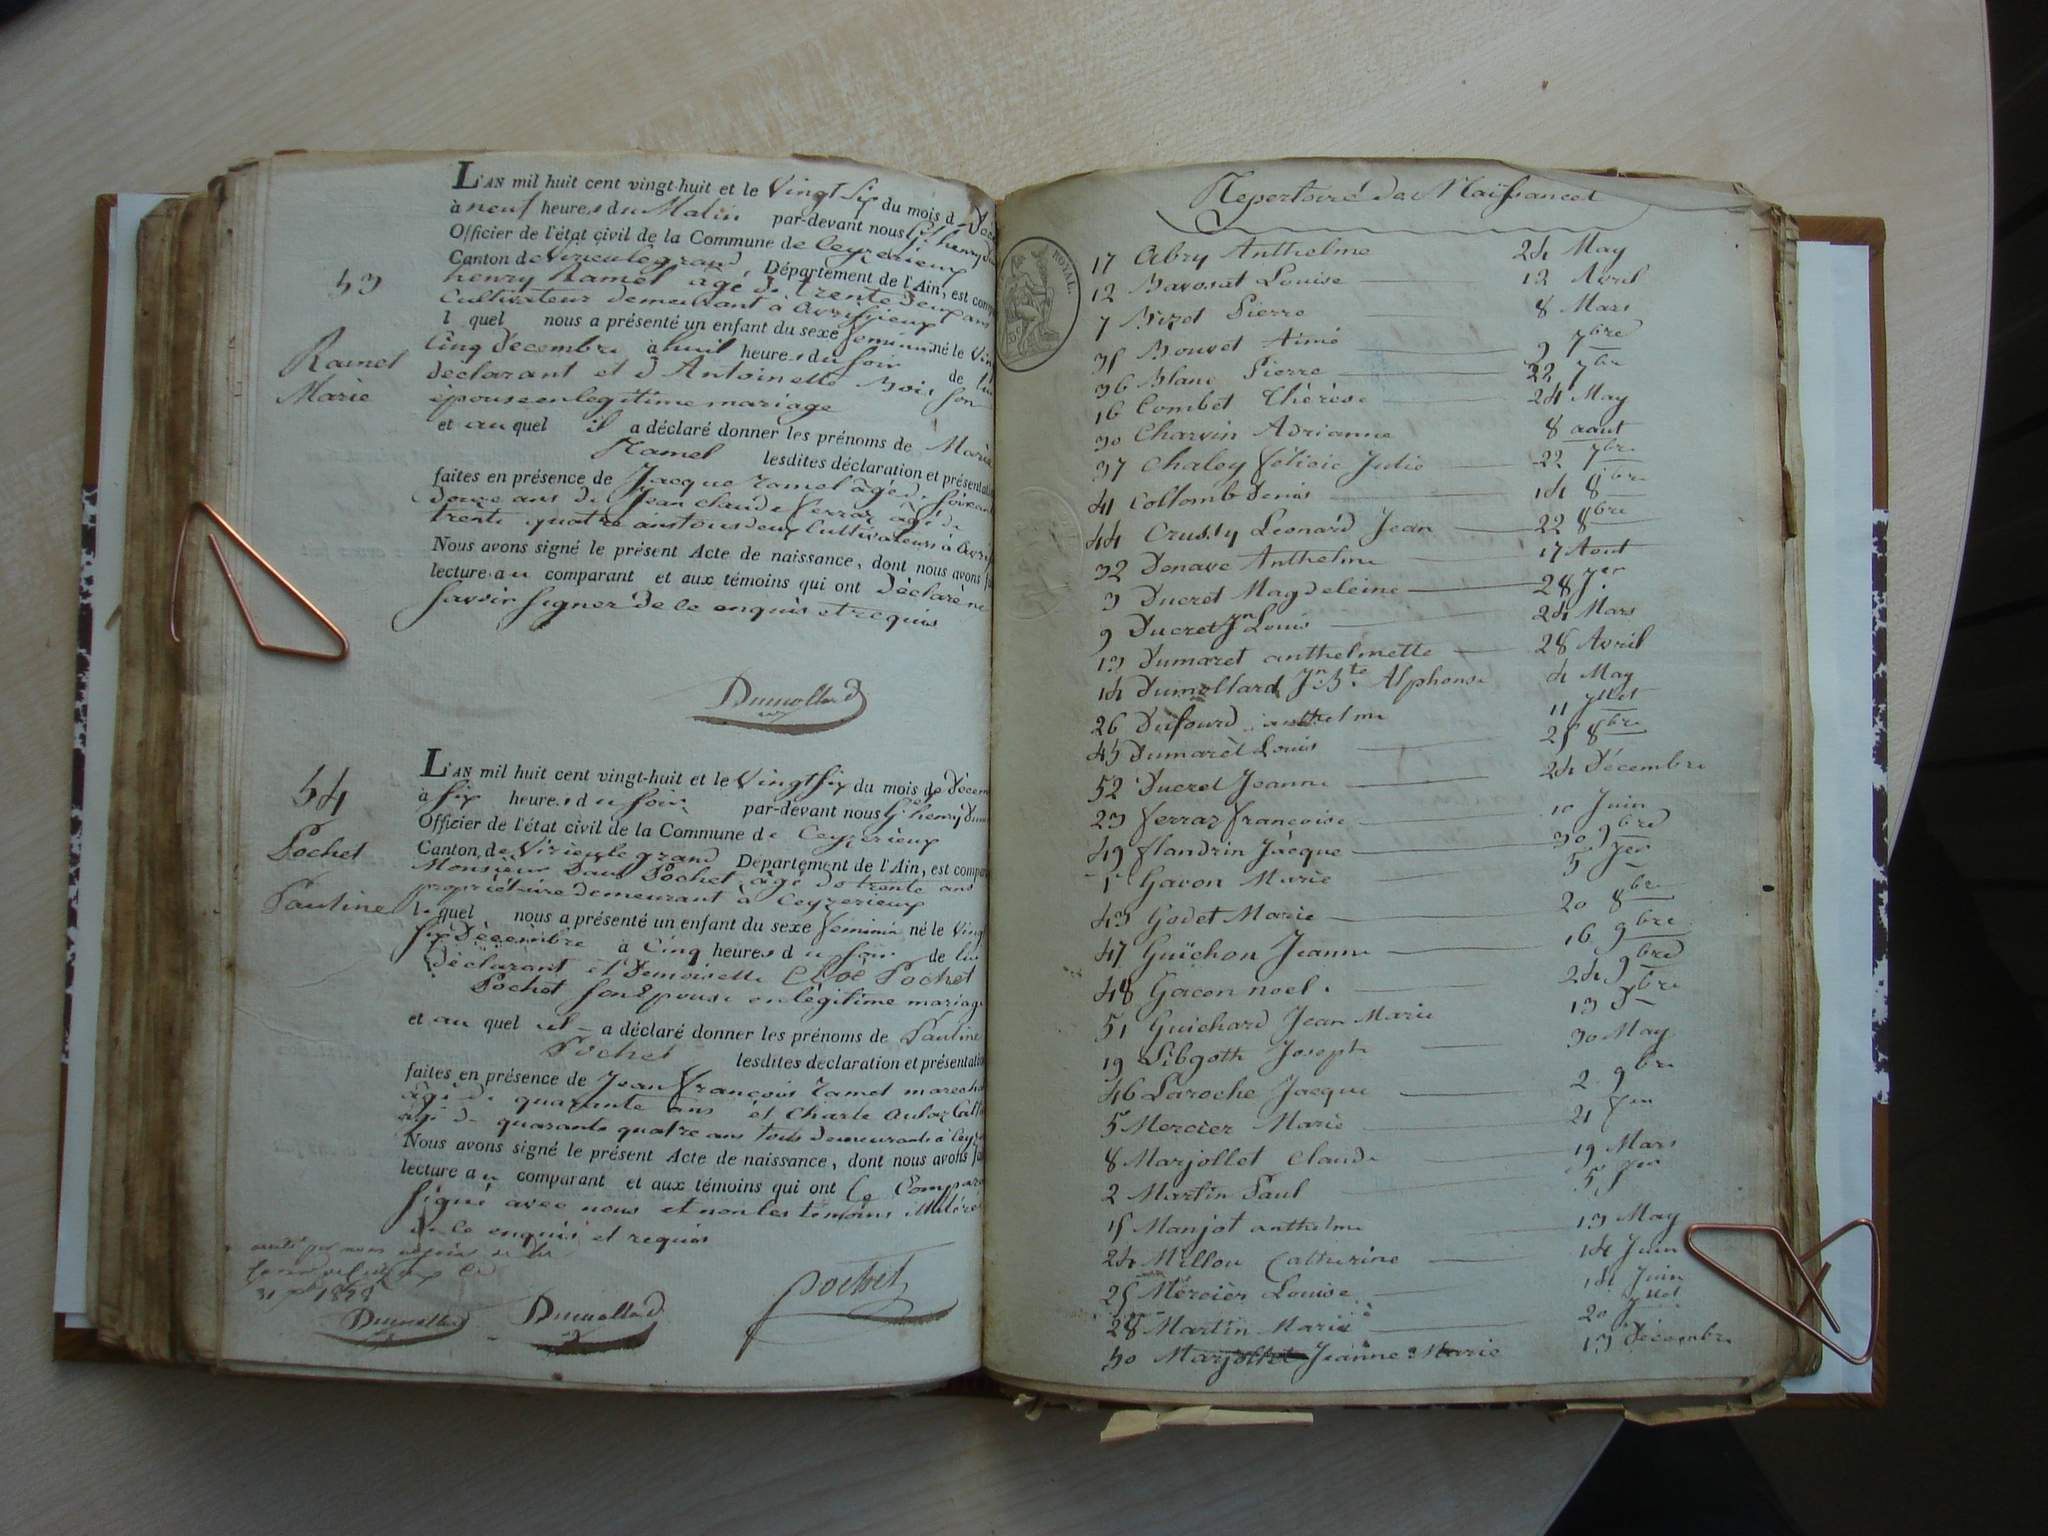 L'AN mil huit cent vingt-huit et le Vingt six du mois d
à neuf heures du Matin par-devant nous
Officier de l'état civil de la Commune de Ceyzerieux
Canton de Virieulegrand, Département de l'Ain, est comp
53
henry Ramel agé de trente deux ans
Cultivateur demeurant à
l quel nous a présenté un enfant du sexe feminin né le Vin
Ramel
Cinq Decembre à huit heures du soir de lui
declarant et d Antoinette Bois son
Marie
épouse en legitime mariage
et au quel il a déclaré donner les prénoms de Marie
Ramel lesdites déclaration et présentati
faites en présence de Jacque ramel âgé de soixan
douze ans de Jean claude ferraz âgé de
trente quatre ans tous deux Cultivateurs à
Nous avons signé le présent Acte de naissance, dont nous avons f
lecture au comparant et aux témoins qui ont Déclaré ne
savoir signer de ce enquis et requis
Dumollard
L'AN mil huit cent vingt-huit et le Vingt six du mois de Décem
54
à six heures du soir par-devant nous henry Dum
Officier de l'état civil de la Commune de Ceyzerieux
Pochet
Canton de Virieulegrand Département de l'Ain, est compar
Monsieur Paul Pochet âgé de trente ans
propriétaire demeurant à Ceyzerieux
Pauline
le quel nous a présenté un enfant du sexe feminin né le Vingt
six Décembre à Cinq heures du soir de lui
déclarant et Demoiselle Cloé Pochet
Pochet son Epouse en légitime mariage
et au quel il a déclaré donner les prénoms de Pauline
Pochet lesdites declaration et présentatio
faites en présence de Jean François ramel marech
âgé de quarante ans et Charle
agé de quarante quatre ans tous demeurants à Ceyz
Nous avons signé le présent Acte de naissance, dont nous avons f
lecture au comparant et aux témoins qui ont le Compar
signé avec nous et non les temoins
de ce enquis et requis
31 1828
Dumollard Dumollard Pochet
Repertoire des Naissances
ROYAL.
17 Abry Anthelme 24 May
12 Bavosat Louise 12 Avril
7 Bizet Pierre 8 Mars
35 Bouvet Aimé 9 7bre
36 Blanc Pierre 22 7bre
16 Combet Thérèse 24 May
30 Charvin Adrianne 8 aout
37 Chaley félicie Julie 22 7bre
41 Collomb Denis 14 8bre
44 Crussy Leonard Jean 22 8bre
32 Denave Anthelme 17 Aout
3 Ducret Magdeleine 28 Jer
9 Ducret Jn Louis 24 Mars
13 Dumaret anthelmette 28 Avril
14 Dumollard Jn Bte Alphonse 4 May
26 Dufourd anthelme 11 Jllet
45 Dumarêt Louis 25 8bre
52 Ducret Jeanne 24 Décembre
23 ferraz francoise 10 Juin
49 flandrin Jacque 30 9bre
1 Gavon Marie 5 Jer
43 Godet Marie 20 8bre
47 Guichon Jeanne 16 9bre
48 Gacon noel 24 9bre
51 Guichard Jean Marie 13 Xbre
19 Libgoth Joseph 30 May
46 Laroche Jacque 2 9bre
5 Mercier Marie 21 Jer
8 Marjollet Claude 19 Mars
2 Martin Paul 5 Jer
15 Manjot anthelme 13 May
24 Millou Catherine 14 Juin
25 Mercier Louise 14 Juin
28 Martin Marie 20 Jllet
50 Marjollet Jeanne Marie 13 Décembre